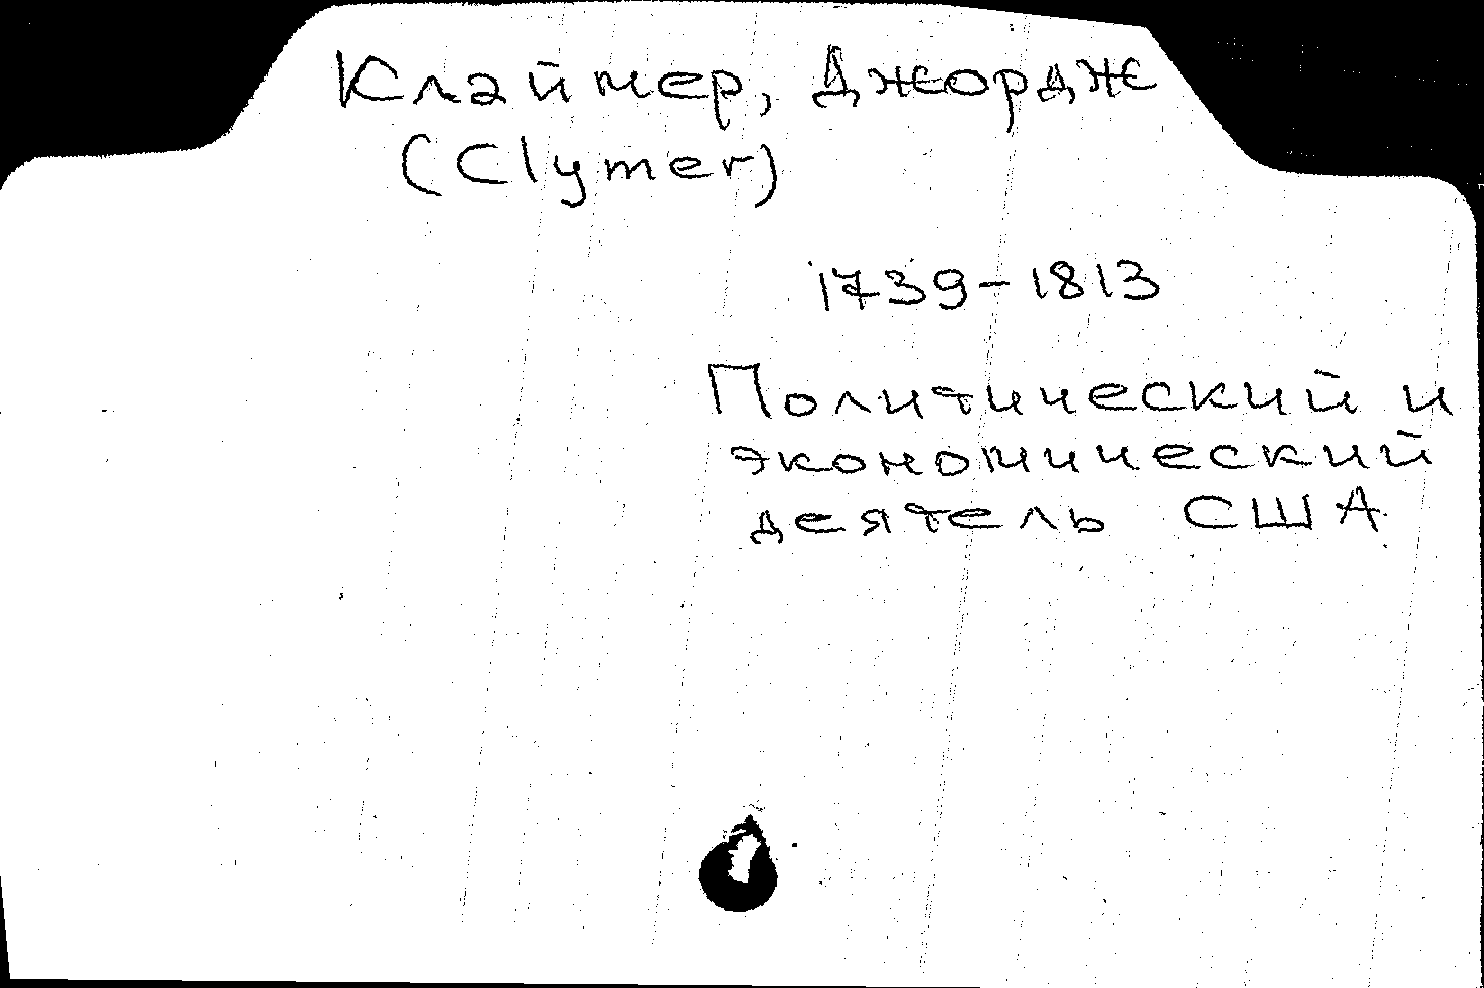 Клаймер, Джордж
(Clymer)
1739-1813
Политический и
экономический
деятель США